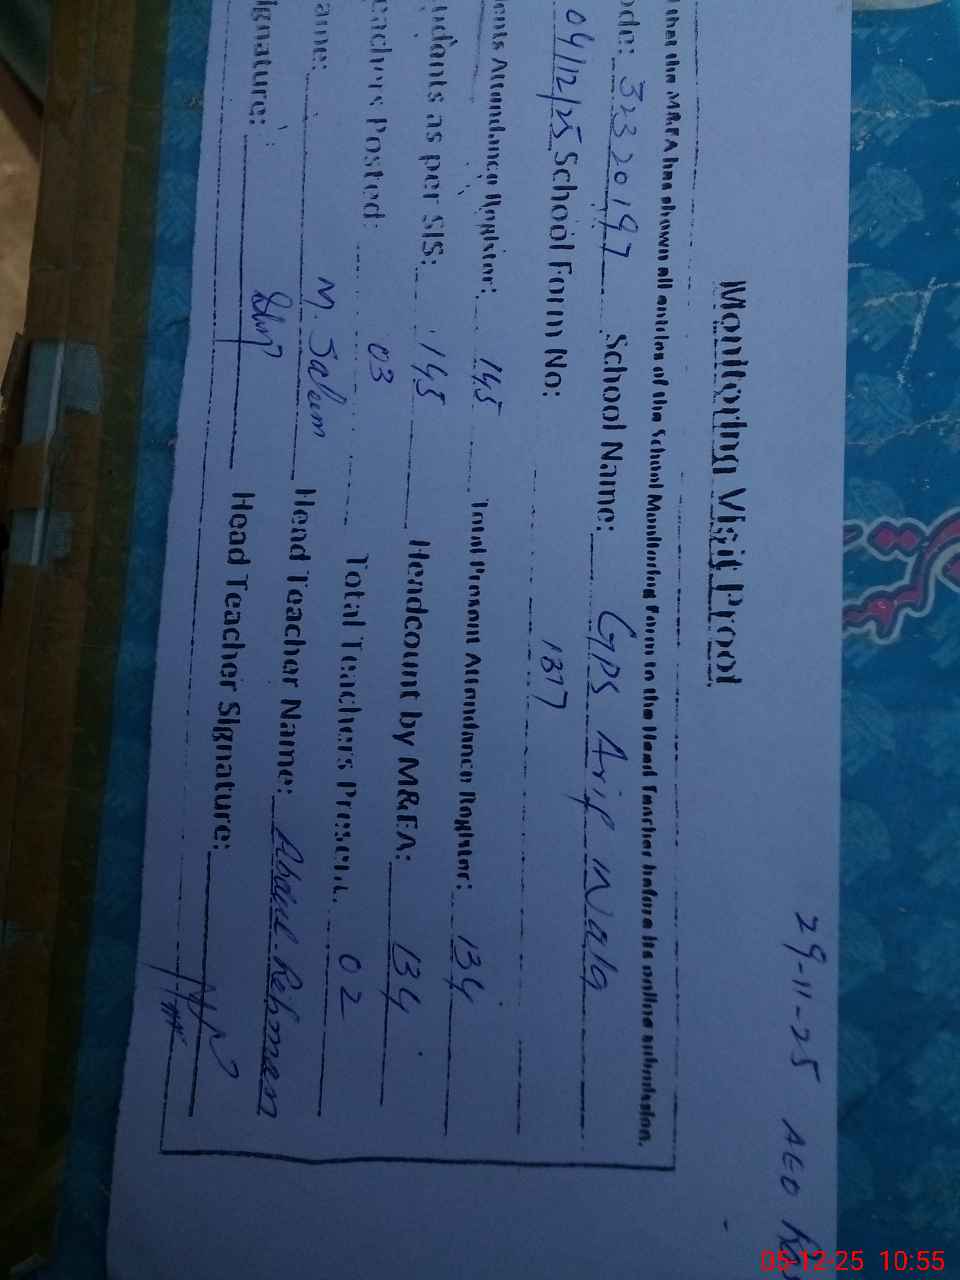 29-11-25 AEO
Monitoring Visit Proof
that the M&EA has shown all entries of the School Monitoring Form to the Head Teacher before its online submission.
ode: 32320197 School Name: GPS Arif Wala
04/12/25 School Form No: 1377
ents Attendance Register: 145 Total Present Attendance Register: 134
udents as per SIS: 145 Headcount by M&EA: 134
eachers Posted: 03 Total Teachers Present: 02
ame: M. Saleem Head Teacher Name: Abdul Rehman
ignature: Head Teacher Signature:
05-12-25 10:55